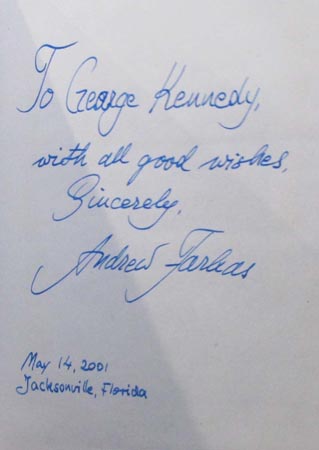 To George Kennedy,
with all good wishes,
Sincerely,
Andrew Farkas
May 14, 2001
Jacksonville, Florida